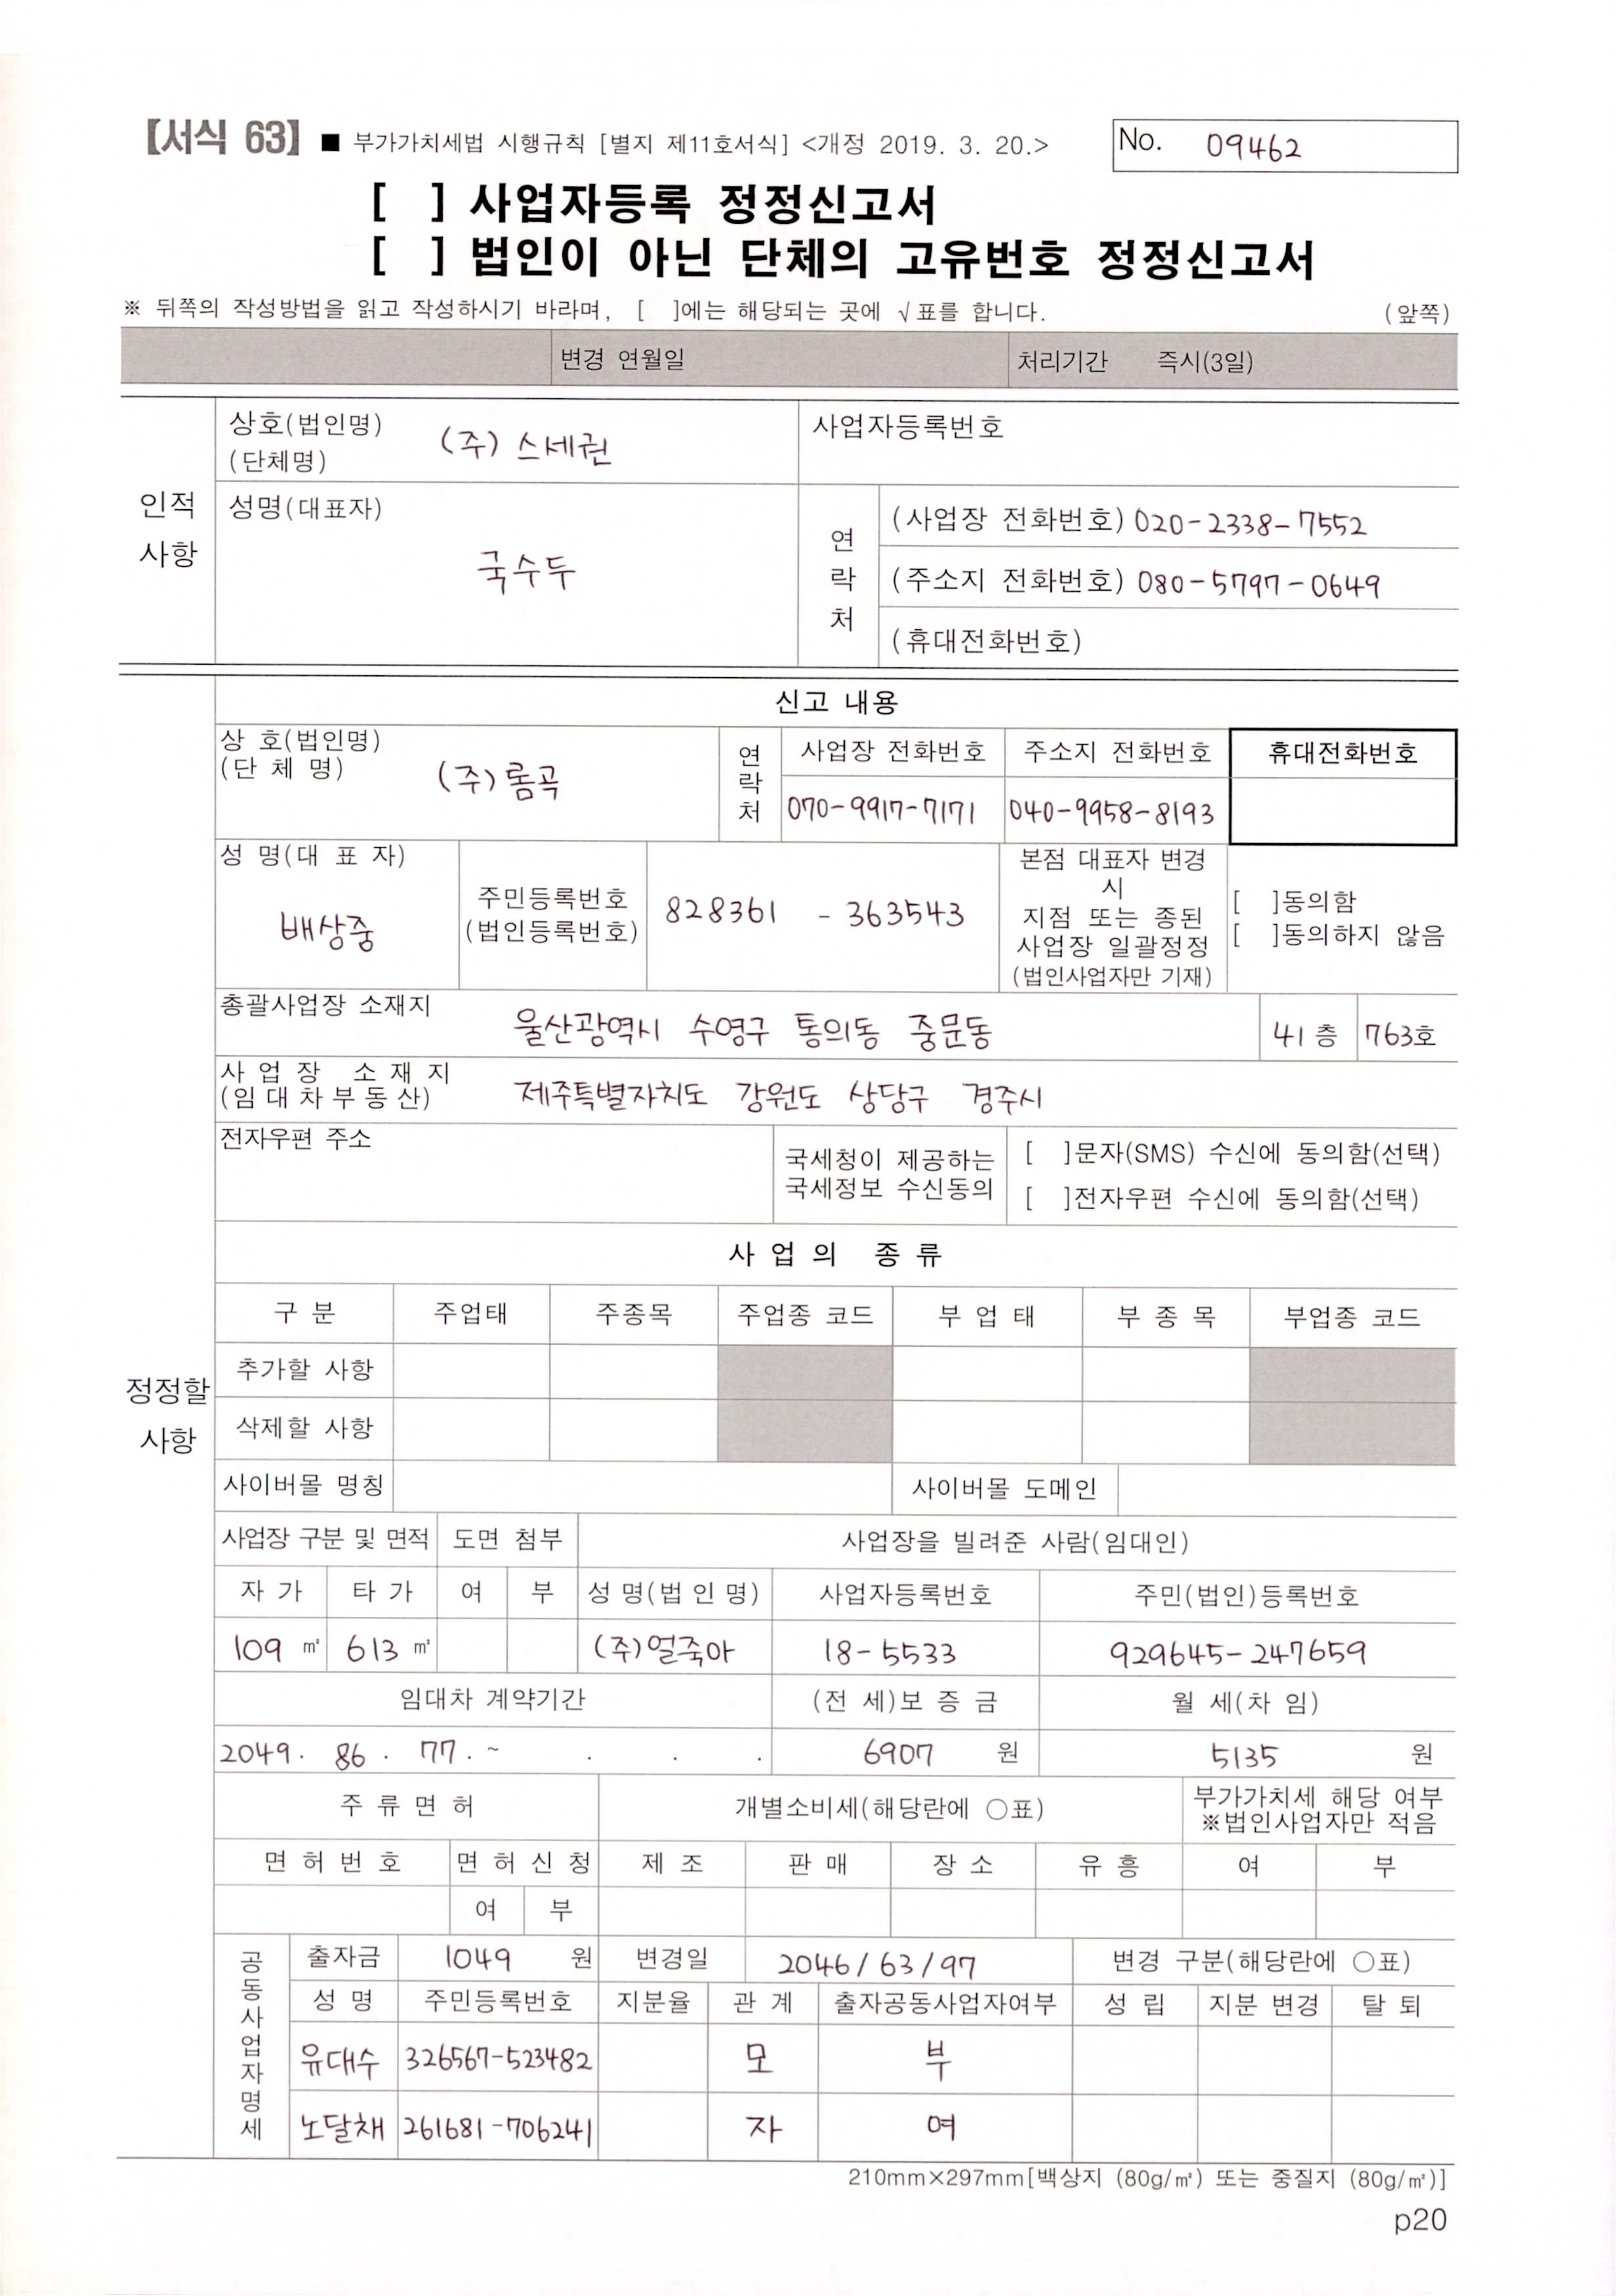 【서식 63】 ■ 부가가치세법 시행규칙 [별지 제11호서식] <개정 2019. 3. 20.>
No. 09462
[ ] 사업자등록 정정신고서
[ ] 법인이 아닌 단체의 고유번호 정정신고서
※ 뒤쪽의 작성방법을 읽고 작성하시기 바라며, [ ]에는 해당되는 곳에 √표를 합니다. (앞쪽)
변경 연월일 처리기간 즉시(3일)
인적 사항
상호(법인명) (단체명) (주) 스세권
사업자등록번호
성명(대표자) 국수두
연락처
(사업장 전화번호) 020-2338-7552
(주소지 전화번호) 080-5797-0649
(휴대전화번호)
정정할 사항
신고 내용
상 호(법인명) (단 체 명) (주)롬곡
연락처
사업장 전화번호 주소지 전화번호 휴대전화번호
070-9917-7171 040-9958-8193
성 명(대 표 자) 배상중
주민등록번호 (법인등록번호) 828361 - 363543
본점 대표자 변경
시
지점 또는 종된
사업장 일괄정정
(법인사업자만 기재)
[ ]동의함
[ ]동의하지 않음
총괄사업장 소재지 울산광역시 수영구 통의동 중문동 41 층 763호
사 업 장 소 재 지
(임 대 차 부 동 산) 제주특별자치도 강원도 상당구 경주시
전자우편 주소
국세청이 제공하는
국세정보 수신동의
[ ]문자(SMS) 수신에 동의함(선택)
[ ]전자우편 수신에 동의함(선택)
사 업 의 종 류
구 분 주업태 주종목 주업종 코드 부 업 태 부 종 목 부업종 코드
추가할 사항
삭제할 사항
사이버몰 명칭 사이버몰 도메인
사업장 구분 및 면적 도면 첨부 사업장을 빌려준 사람(임대인)
자 가 타 가 여 부 성 명(법 인 명) 사업자등록번호 주민(법인)등록번호
109 ㎡ 613 ㎡ (주)얼죽아 18-5533 929645-247659
임대차 계약기간 (전 세)보 증 금 월 세(차 임)
2049. 86. 77. ~ . . . 6907 원 5135 원
주 류 면 허 개별소비세(해당란에 ○표) 부가가치세 해당 여부
※법인사업자만 적음
면 허 번 호 면 허 신 청 제 조 판 매 장 소 유 흥 여 부
여 부
공동사업자명세
출자금 1049 원 변경일 2046/63/97 변경 구분(해당란에 ○표)
성 명 주민등록번호 지분율 관 계 출자공동사업자여부 성 립 지분 변경 탈 퇴
유대수 326567-523482 모 부
노달채 261681-706241 자 여
210mm×297mm[백상지 (80g/㎡) 또는 중질지 (80g/㎡)]
p20